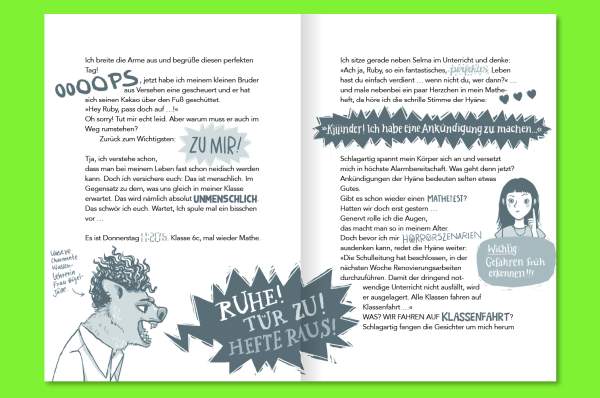 Ich breite die Arme aus und begrüße diesen perfekten
Tag!
OOOOPS, jetzt habe ich meinem kleinen Bruder
aus Versehen eine gescheuert und er hat
sich seinen Kakao über den Fuß geschüttet.
»Hey Ruby, pass doch auf …!«
Oh sorry! Tut mir echt leid. Aber warum muss er auch im
Weg rumstehen?
Zurück zum Wichtigsten:
ZU MIR!
Tja, ich verstehe schon,
dass man bei meinem Leben fast schon neidisch werden
kann. Doch ich versichere euch: Das ist menschlich. Im
Gegensatz zu dem, was uns gleich in meiner Klasse
erwartet. Das wird nämlich absolut UNMENSCHLICH.
Das schwör ich euch. Wartet, Ich spule mal ein bisschen
vor …
Es ist Donnerstag 11:20. Klasse 6c, mal wieder Mathe.
Unsere
charmante
Klassen-
lehrerin
Frau
RUHE!
TÜR ZU!
HEFTE RAUS!
Ich sitze gerade neben Selma im Unterricht und denke:
»Ach ja, Ruby, so ein fantastisches, perfektes Leben
hast du einfach verdient … wenn nicht du, wer dann?« …
und male nebenbei ein paar Herzchen in mein Mathe-
heft, da höre ich die schrille Stimme der Hyäne:
»Kiiinder! Ich habe eine Ankündigung zu machen…«
Schlagartig spannt mein Körper sich an und versetzt
mich in höchste Alarmbereitschaft. Was geht denn jetzt?
Ankündigungen der Hyäne bedeuten selten etwas
Gutes.
Gibt es schon wieder einen MATHETEST?
Hatten wir doch erst gestern …
Genervt rolle ich die Augen,
das macht man so in meinem Alter.
Doch bevor ich mir HORRORSZENARIEN
ausdenken kann, redet die Hyäne weiter:
»Die Schulleitung hat beschlossen, in der
nächsten Woche Renovierungsarbeiten
durchzuführen. Damit der dringend not-
wendige Unterricht nicht ausfällt, wird
er ausgelagert. Alle Klassen fahren auf
Klassenfahrt …«
WAS? WIR FAHREN AUF KLASSENFAHRT?
Schlagartig fangen die Gesichter um mich herum
Wichtig
Gefahren früh
erkennen!!!